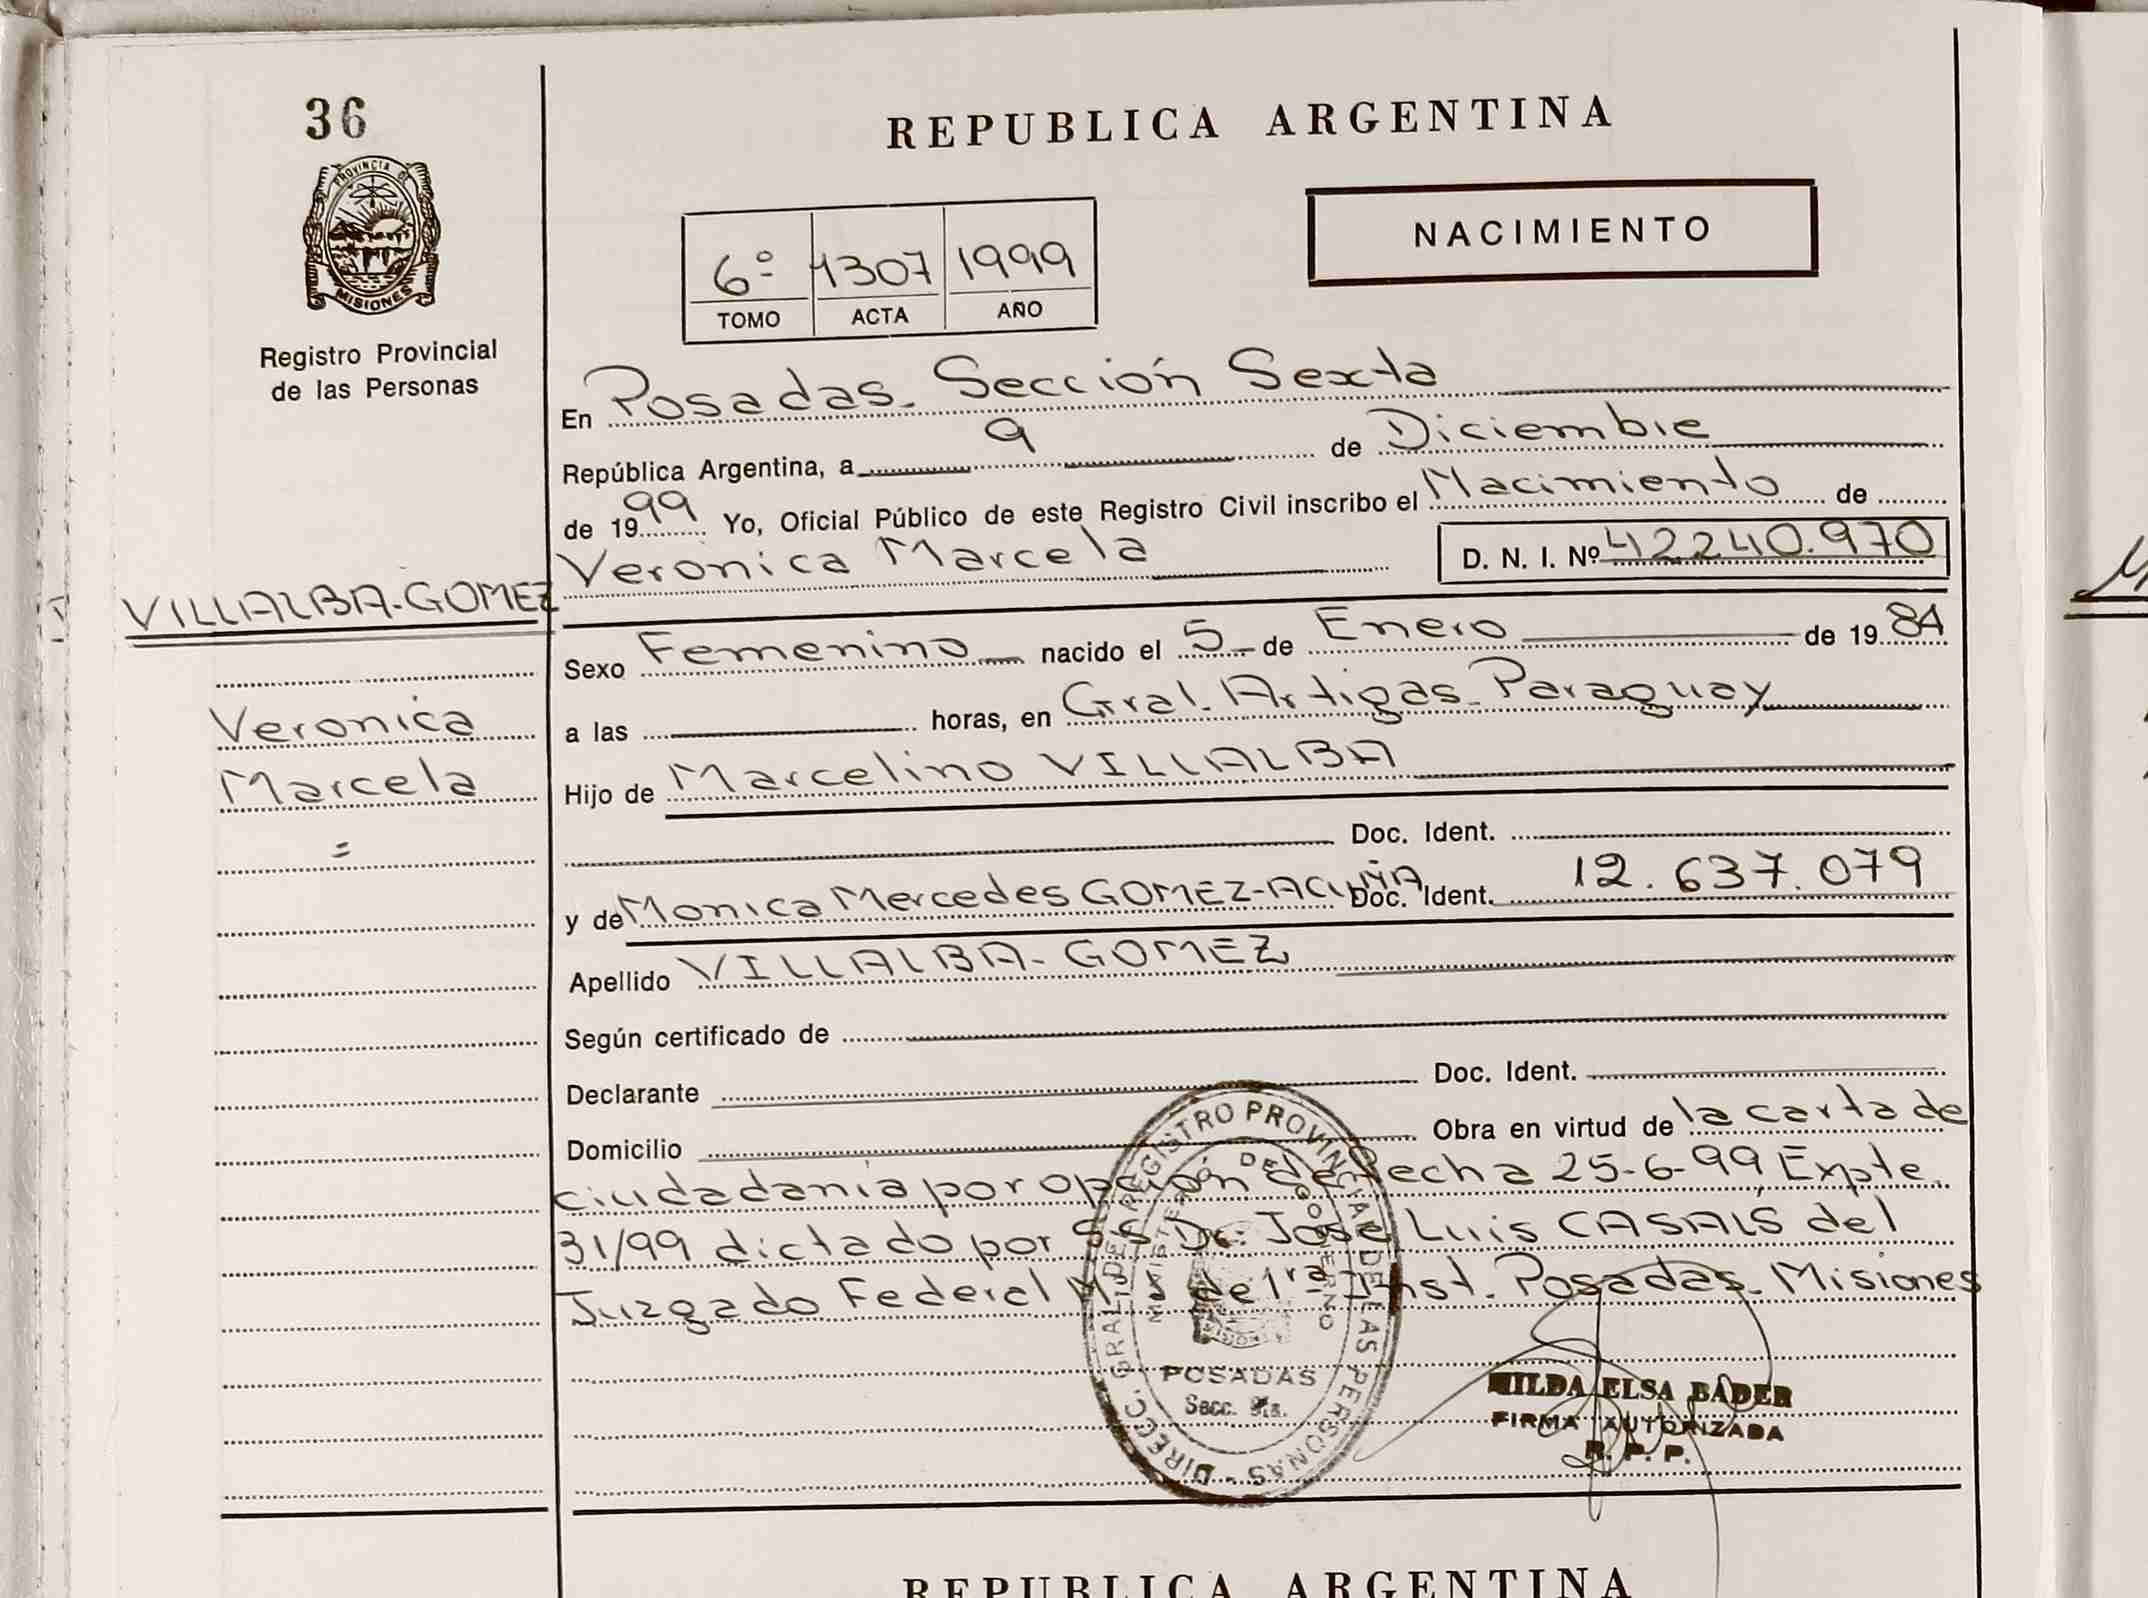 36
PROVINCIA DE
MISIONES
Registro Provincial
de las Personas
REPUBLICA ARGENTINA
NACIMIENTO
6º 1307 1999
TOMO ACTA AÑO
En Posadas. Sección Sexta
República Argentina, a 9 de Diciembre
de 1999 Yo, Oficial Público de este Registro Civil inscribo el Nacimiento de
Veronica Marcela D. N. I. Nº 42240.970
VILLALBA-GOMEZ
Veronica
Marcela
=
Sexo Femenino nacido el 5 de Enero de 1984
a las horas, en Gral. Artigas. Paraguay
Hijo de Marcelino VILLALBA
Doc. Ident.
y de Monica Mercedes GOMEZ-ACUÑA Doc. Ident. 12.637.079
Apellido VILLALBA-GOMEZ
Según certificado de
Declarante Doc. Ident.
Domicilio Obra en virtud de la carta de
ciudadania por opción de fecha 25-6-99, Expte.
31/99 dictado por S.S Dr. José Luis CASALS del
Juzgado Federal de 1ra Inst. Posadas. Misiones
DIRECC. GRAL. DEL REGISTRO PROVINCIAL DE LAS PERSONAS
MINISTERIO DE GOBIERNO
POSADAS
Secc.
HILDA ELSA BADER
FIRMA AUTORIZADA
R. P. P.
REPUBLICA ARGENTINA